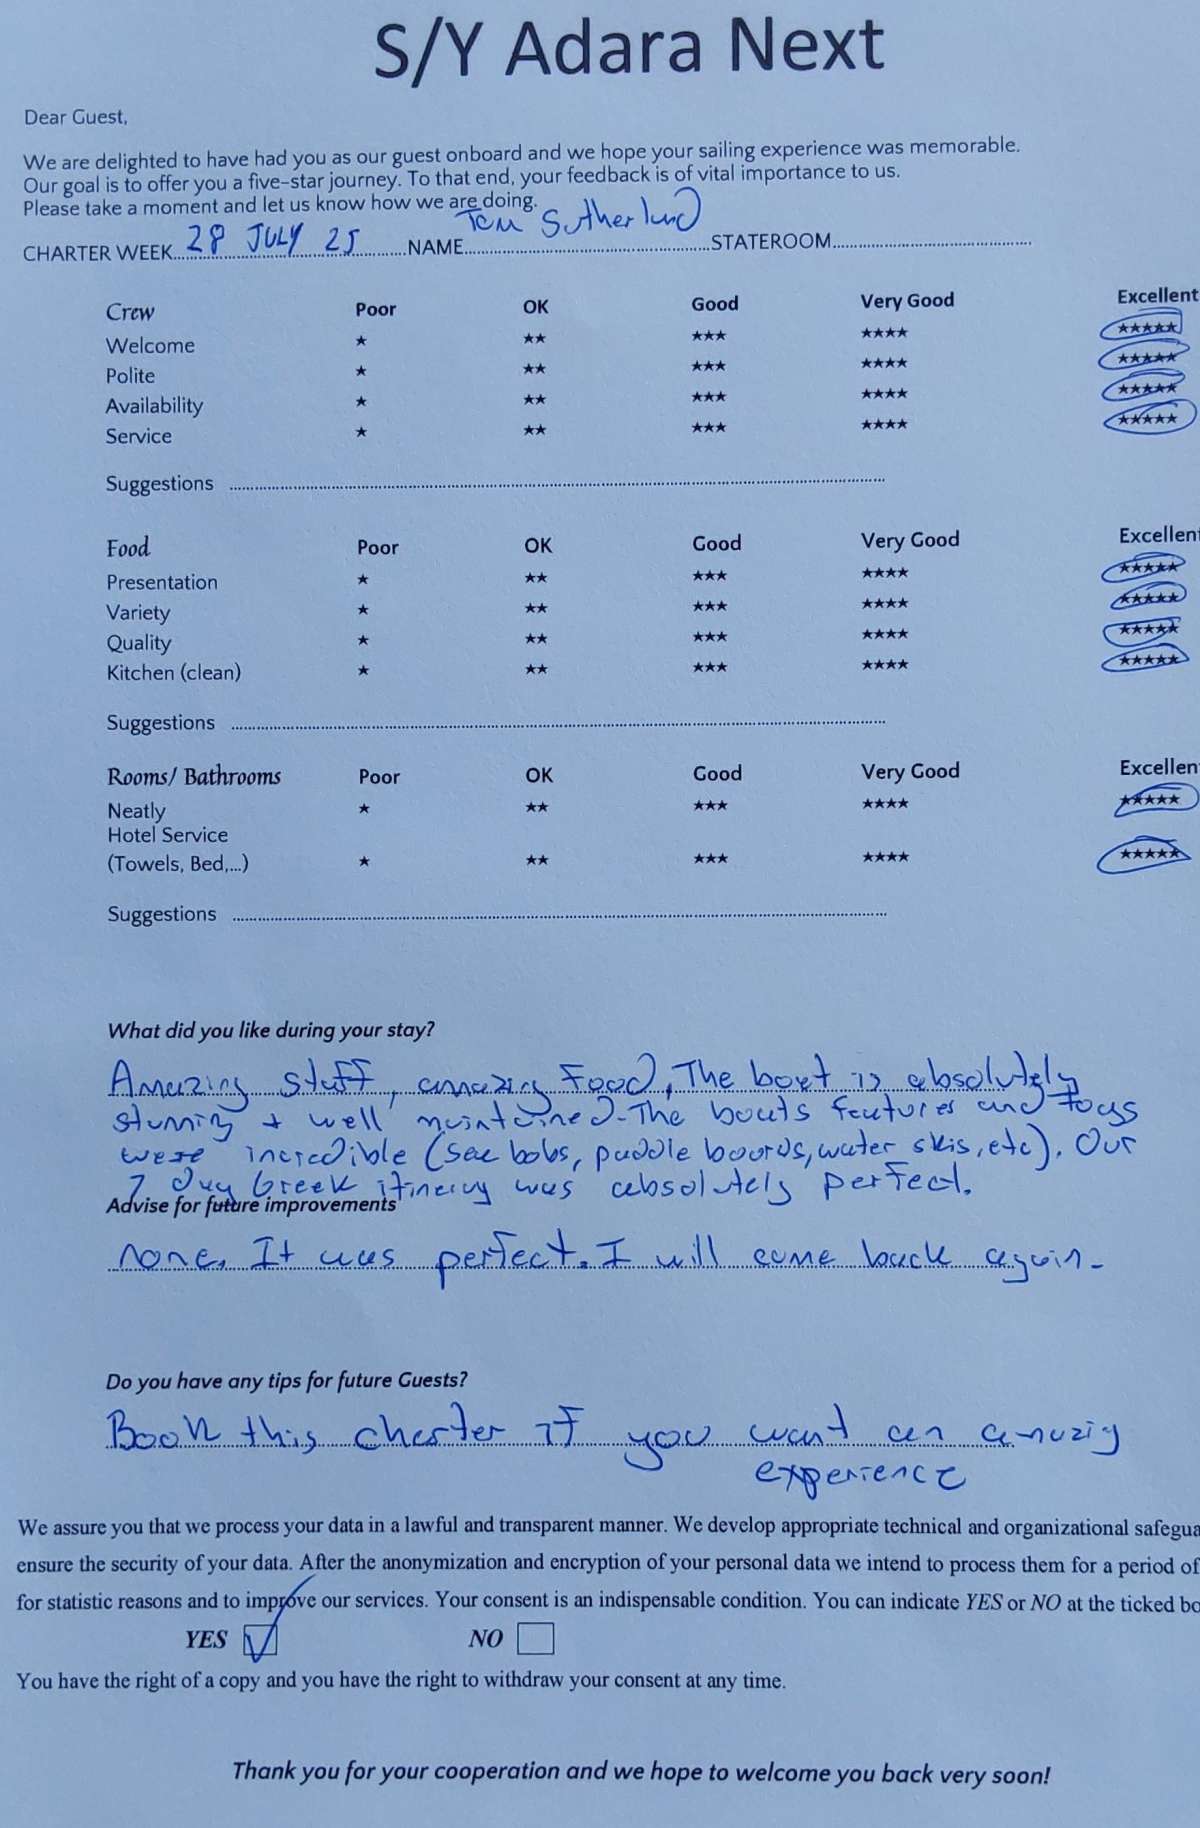 S/Y Adara Next
Dear Guest,
We are delighted to have had you as our guest onboard and we hope your sailing experience was memorable.
Our goal is to offer you a five-star journey. To that end, your feedback is of vital importance to us.
Please take a moment and let us know how we are doing.
CHARTER WEEK 28 JULY 25 NAME Tom Sutherland STATEROOM
Crew Poor OK Good Very Good Excellent
Welcome ★ ★★ ★★★ ★★★★ ★★★★★
Polite ★ ★★ ★★★ ★★★★ ★★★★★
Availability ★ ★★ ★★★ ★★★★ ★★★★★
Service ★ ★★ ★★★ ★★★★ ★★★★★
Suggestions
Food Poor OK Good Very Good Excellent
Presentation ★ ★★ ★★★ ★★★★ ★★★★★
Variety ★ ★★ ★★★ ★★★★ ★★★★★
Quality ★ ★★ ★★★ ★★★★ ★★★★★
Kitchen (clean) ★ ★★ ★★★ ★★★★ ★★★★★
Suggestions
Rooms/ Bathrooms Poor OK Good Very Good Excellen
Neatly ★ ★★ ★★★ ★★★★ ★★★★★
Hotel Service
(Towels, Bed,...) ★ ★★ ★★★ ★★★★ ★★★★★
Suggestions
What did you like during your stay?
Amazing staff, amazing food, The boat is absolutely
stunning + well maintained. The boats features and toys
were incredible (sea bobs, paddle boards, water skis, etc). Our
7 day Greek itinerary was absolutely perfect.
Advise for future improvements
none. It was perfect. I will come back again.
Do you have any tips for future Guests?
Book this charter if you want an amazing
experience
We assure you that we process your data in a lawful and transparent manner. We develop appropriate technical and organizational safegua
ensure the security of your data. After the anonymization and encryption of your personal data we intend to process them for a period of
for statistic reasons and to improve our services. Your consent is an indispensable condition. You can indicate YES or NO at the ticked bo
YES NO
You have the right of a copy and you have the right to withdraw your consent at any time.
Thank you for your cooperation and we hope to welcome you back very soon!